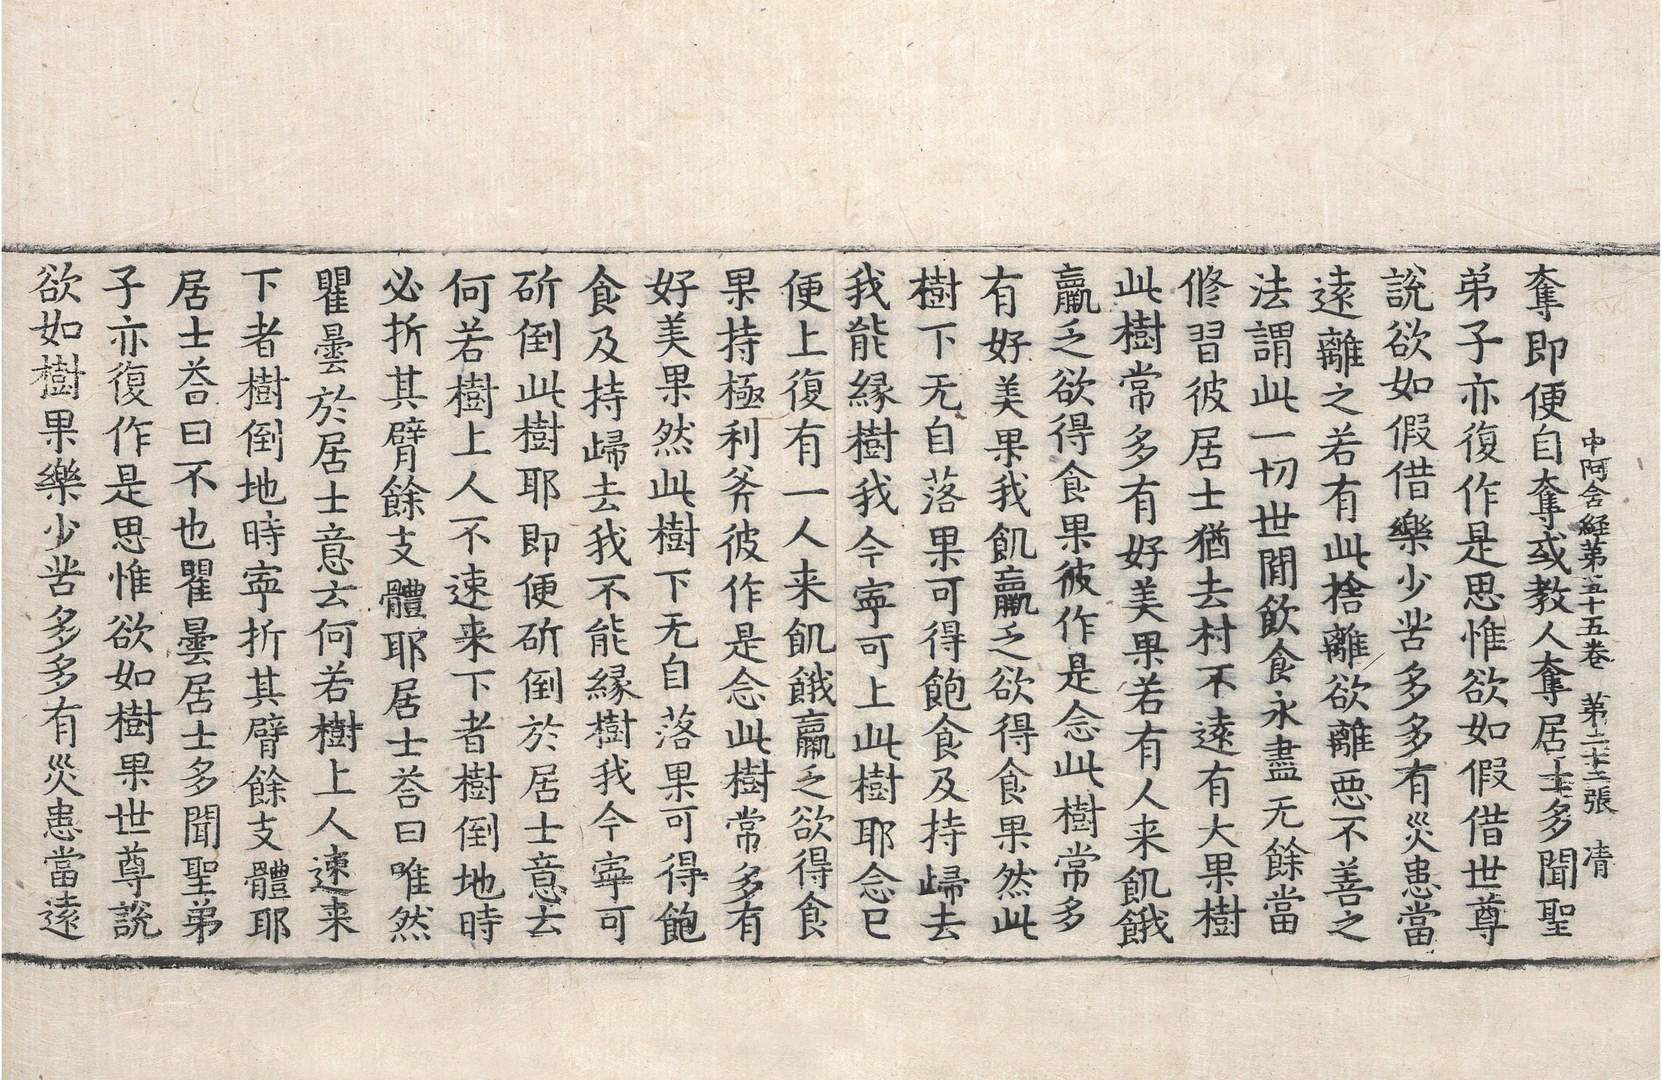 中阿含經第五十五卷 第二十二張 凊
奪即便自奪或教人奪居士多聞聖
弟子亦復作是思惟欲如假借世尊
說欲如假借樂少苦多多有災患當
遠離之若有此捨離欲離惡不善之
法謂此一切世間飲食永盡无餘當
修習彼居士猶去村不遠有大果樹
此樹常多有好美果若有人来飢餓
羸乏欲得食果彼作是念此樹常多
有好美果我飢羸乏欲得食果然此
樹下无自落果可得飽食及持歸去
我能緣樹我今寧可上此樹耶念已
便上復有一人来飢餓羸乏欲得食
果持極利斧彼作是念此樹常多有
好美果然此樹下无自落果可得飽
食及持歸去我不能緣樹我今寧可
斫倒此樹耶即便斫倒於居士意云
何若樹上人不速来下者樹倒地時
必折其臂餘支體耶居士荅曰唯然
瞿曇於居士意云何若樹上人速来
下者樹倒地時寧折其臂餘支體耶
居士荅曰不也瞿曇居士多聞聖弟
子亦復作是思惟欲如樹果世尊說
欲如樹果樂少苦多多有災患當遠